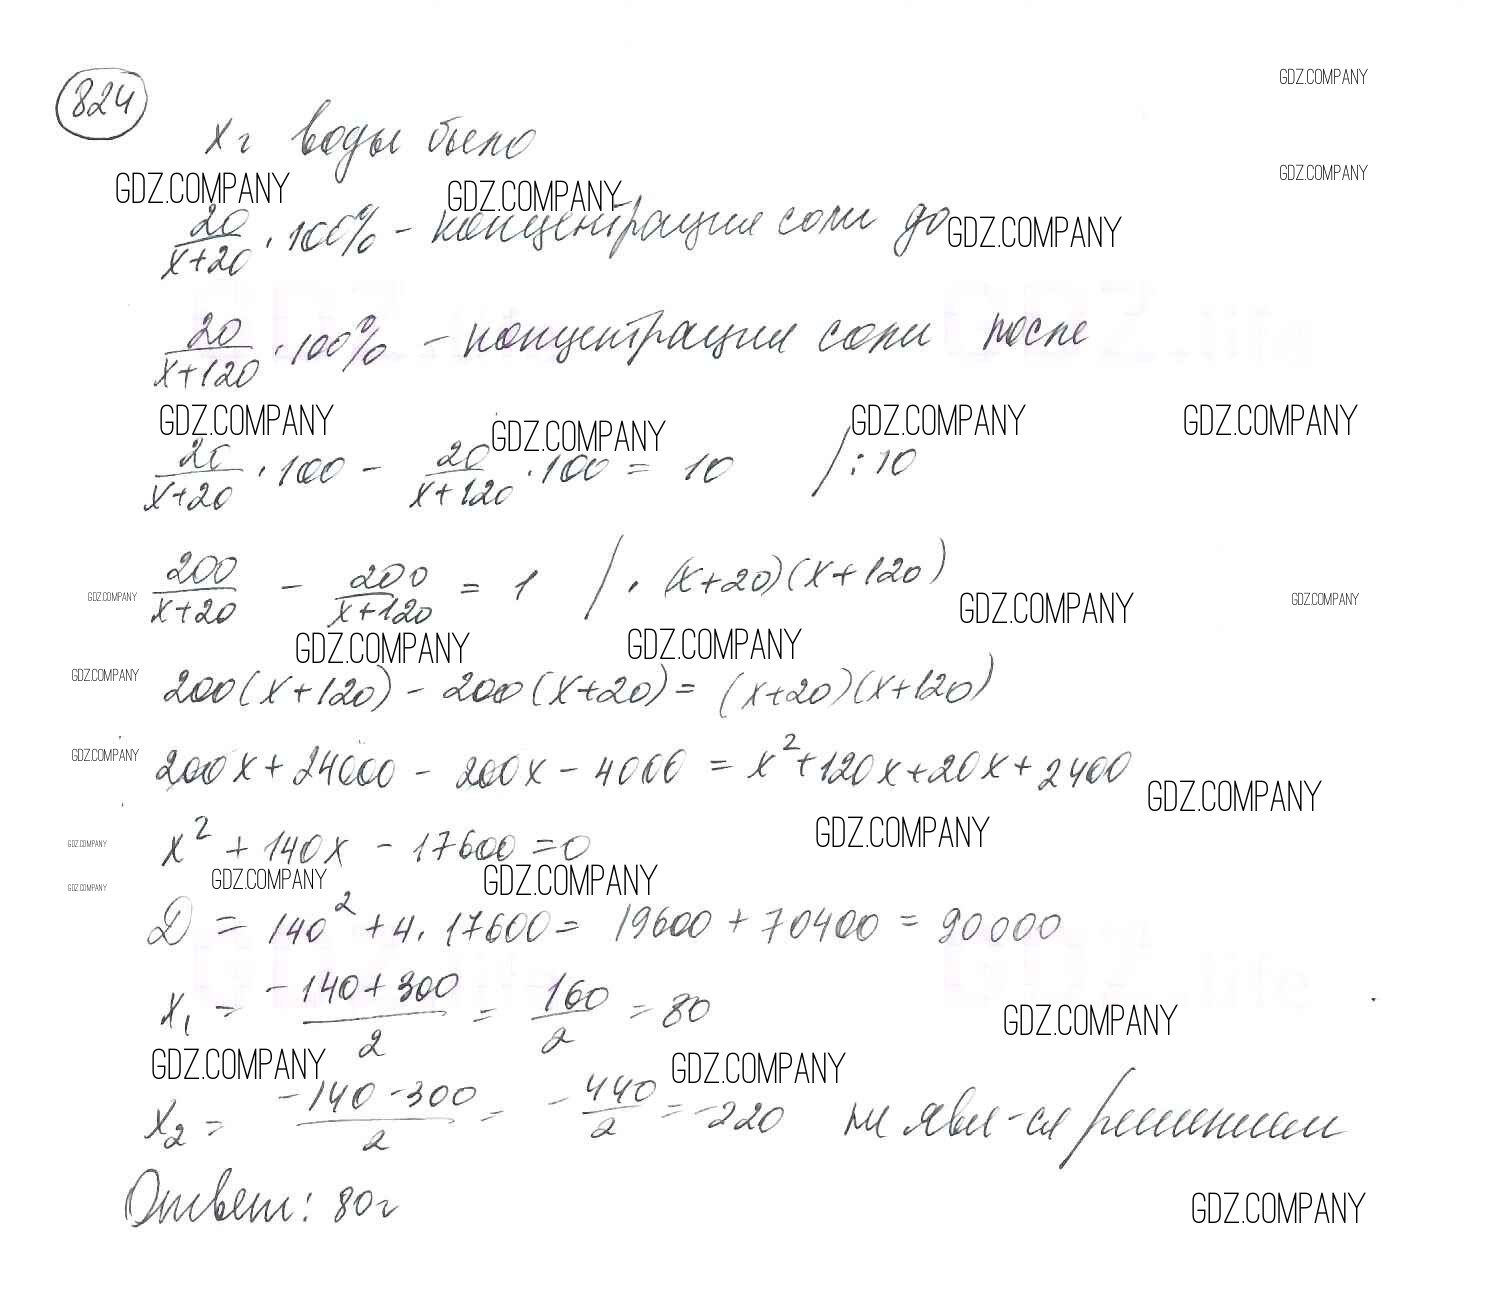 824
GDZ.COMPANY
x г воды было
GDZ.COMPANY
GDZ.COMPANY GDZ.COMPANY
20/(x+20) · 100% - концентрация соли до GDZ.COMPANY
20/(x+120) · 100% - концентрация соли после
GDZ.COMPANY GDZ.COMPANY GDZ.COMPANY GDZ.COMPANY
20/(x+20) · 100 - 20/(x+120) · 100 = 10 /:10
200/(x+20) - 200/(x+120) = 1 / · (x+20)(x+120)
GDZ.COMPANY GDZ.COMPANY GDZ.COMPANY
GDZ.COMPANY GDZ.COMPANY
GDZ.COMPANY 200(x+120) - 200(x+20) = (x+20)(x+120)
GDZ.COMPANY 200x + 24000 - 200x - 4000 = x² + 120x + 20x + 2400
GDZ.COMPANY
GDZ.COMPANY x² + 140x - 17600 = 0 GDZ.COMPANY
GDZ.COMPANY GDZ.COMPANY GDZ.COMPANY
D = 140² + 4 · 17600 = 19600 + 70400 = 90000
x₁ = (-140+300)/2 = 160/2 = 80 GDZ.COMPANY
GDZ.COMPANY GDZ.COMPANY
x₂ = (-140-300)/2 = -440/2 = -220 не явл-ся решением
Ответ: 80г
GDZ.COMPANY